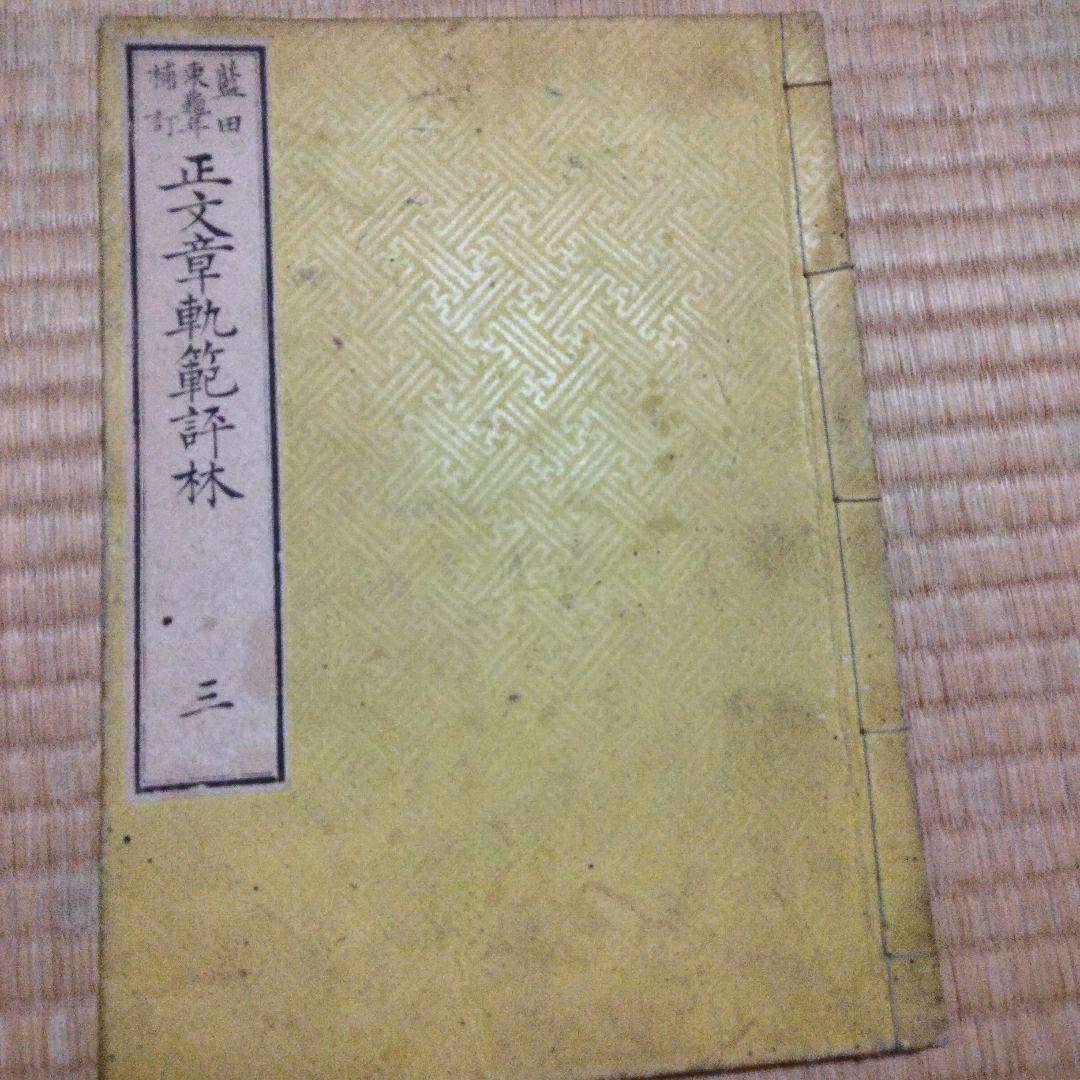 藍田
東龜年
補訂
正文章軌範評林
三